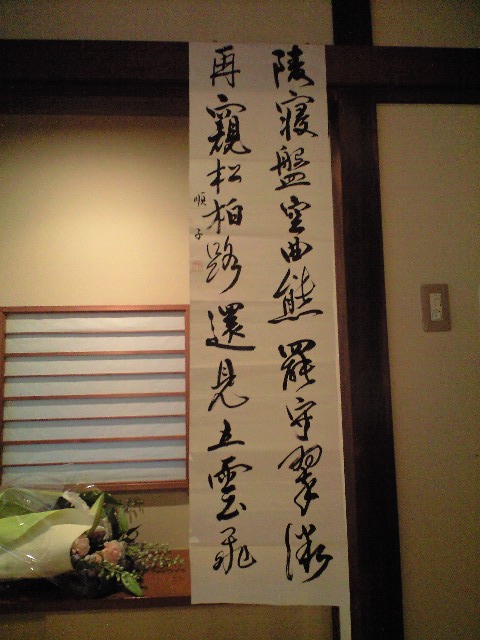 陵寝盤空曲熊羆守翠微
再窺松柏路還見五雲飛
順子